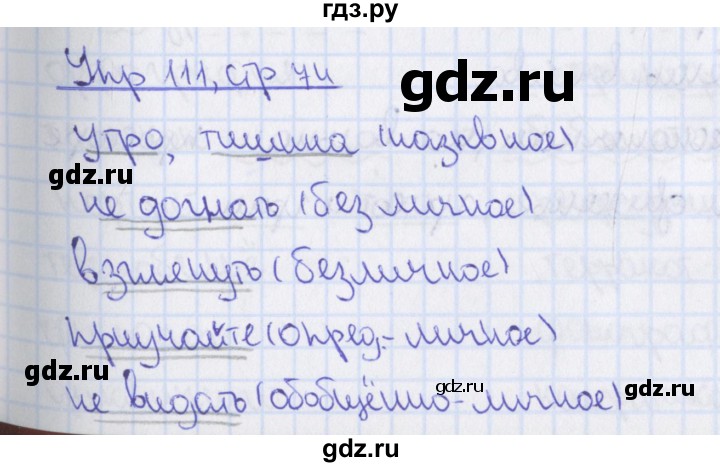 гдз.ру
Упр 111, стр 74
gdz.ru
утро, тишина (назывное)
gdz.ru
не догнать (безличное)
gdz.ru
взглянуть (безличное)
приучайте (опред.- личное)
gdz.ru
gdz.ru
gdz.ru
не видать (обобщённо-личное)
gdz.ru